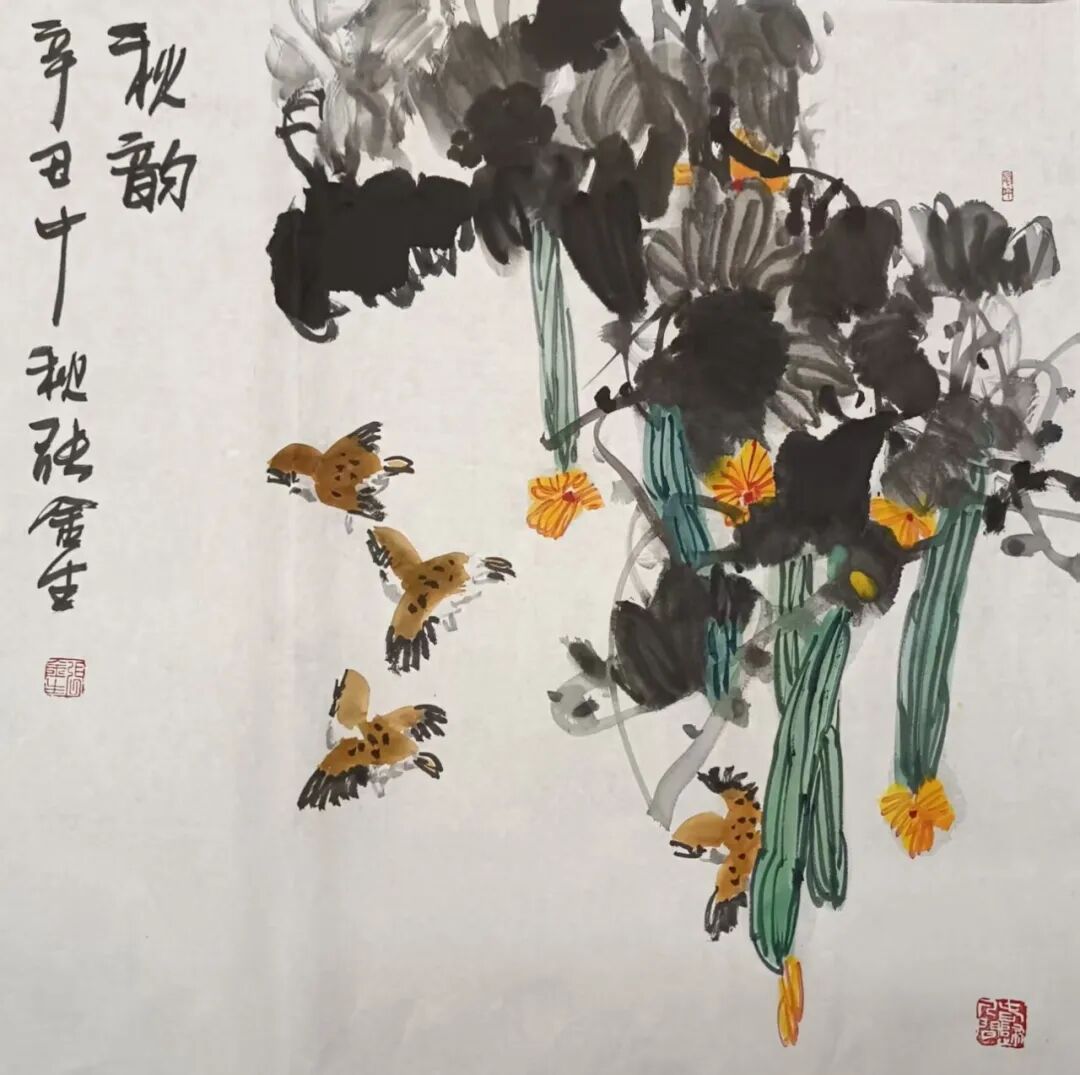 秋韵
辛丑中秋张金生